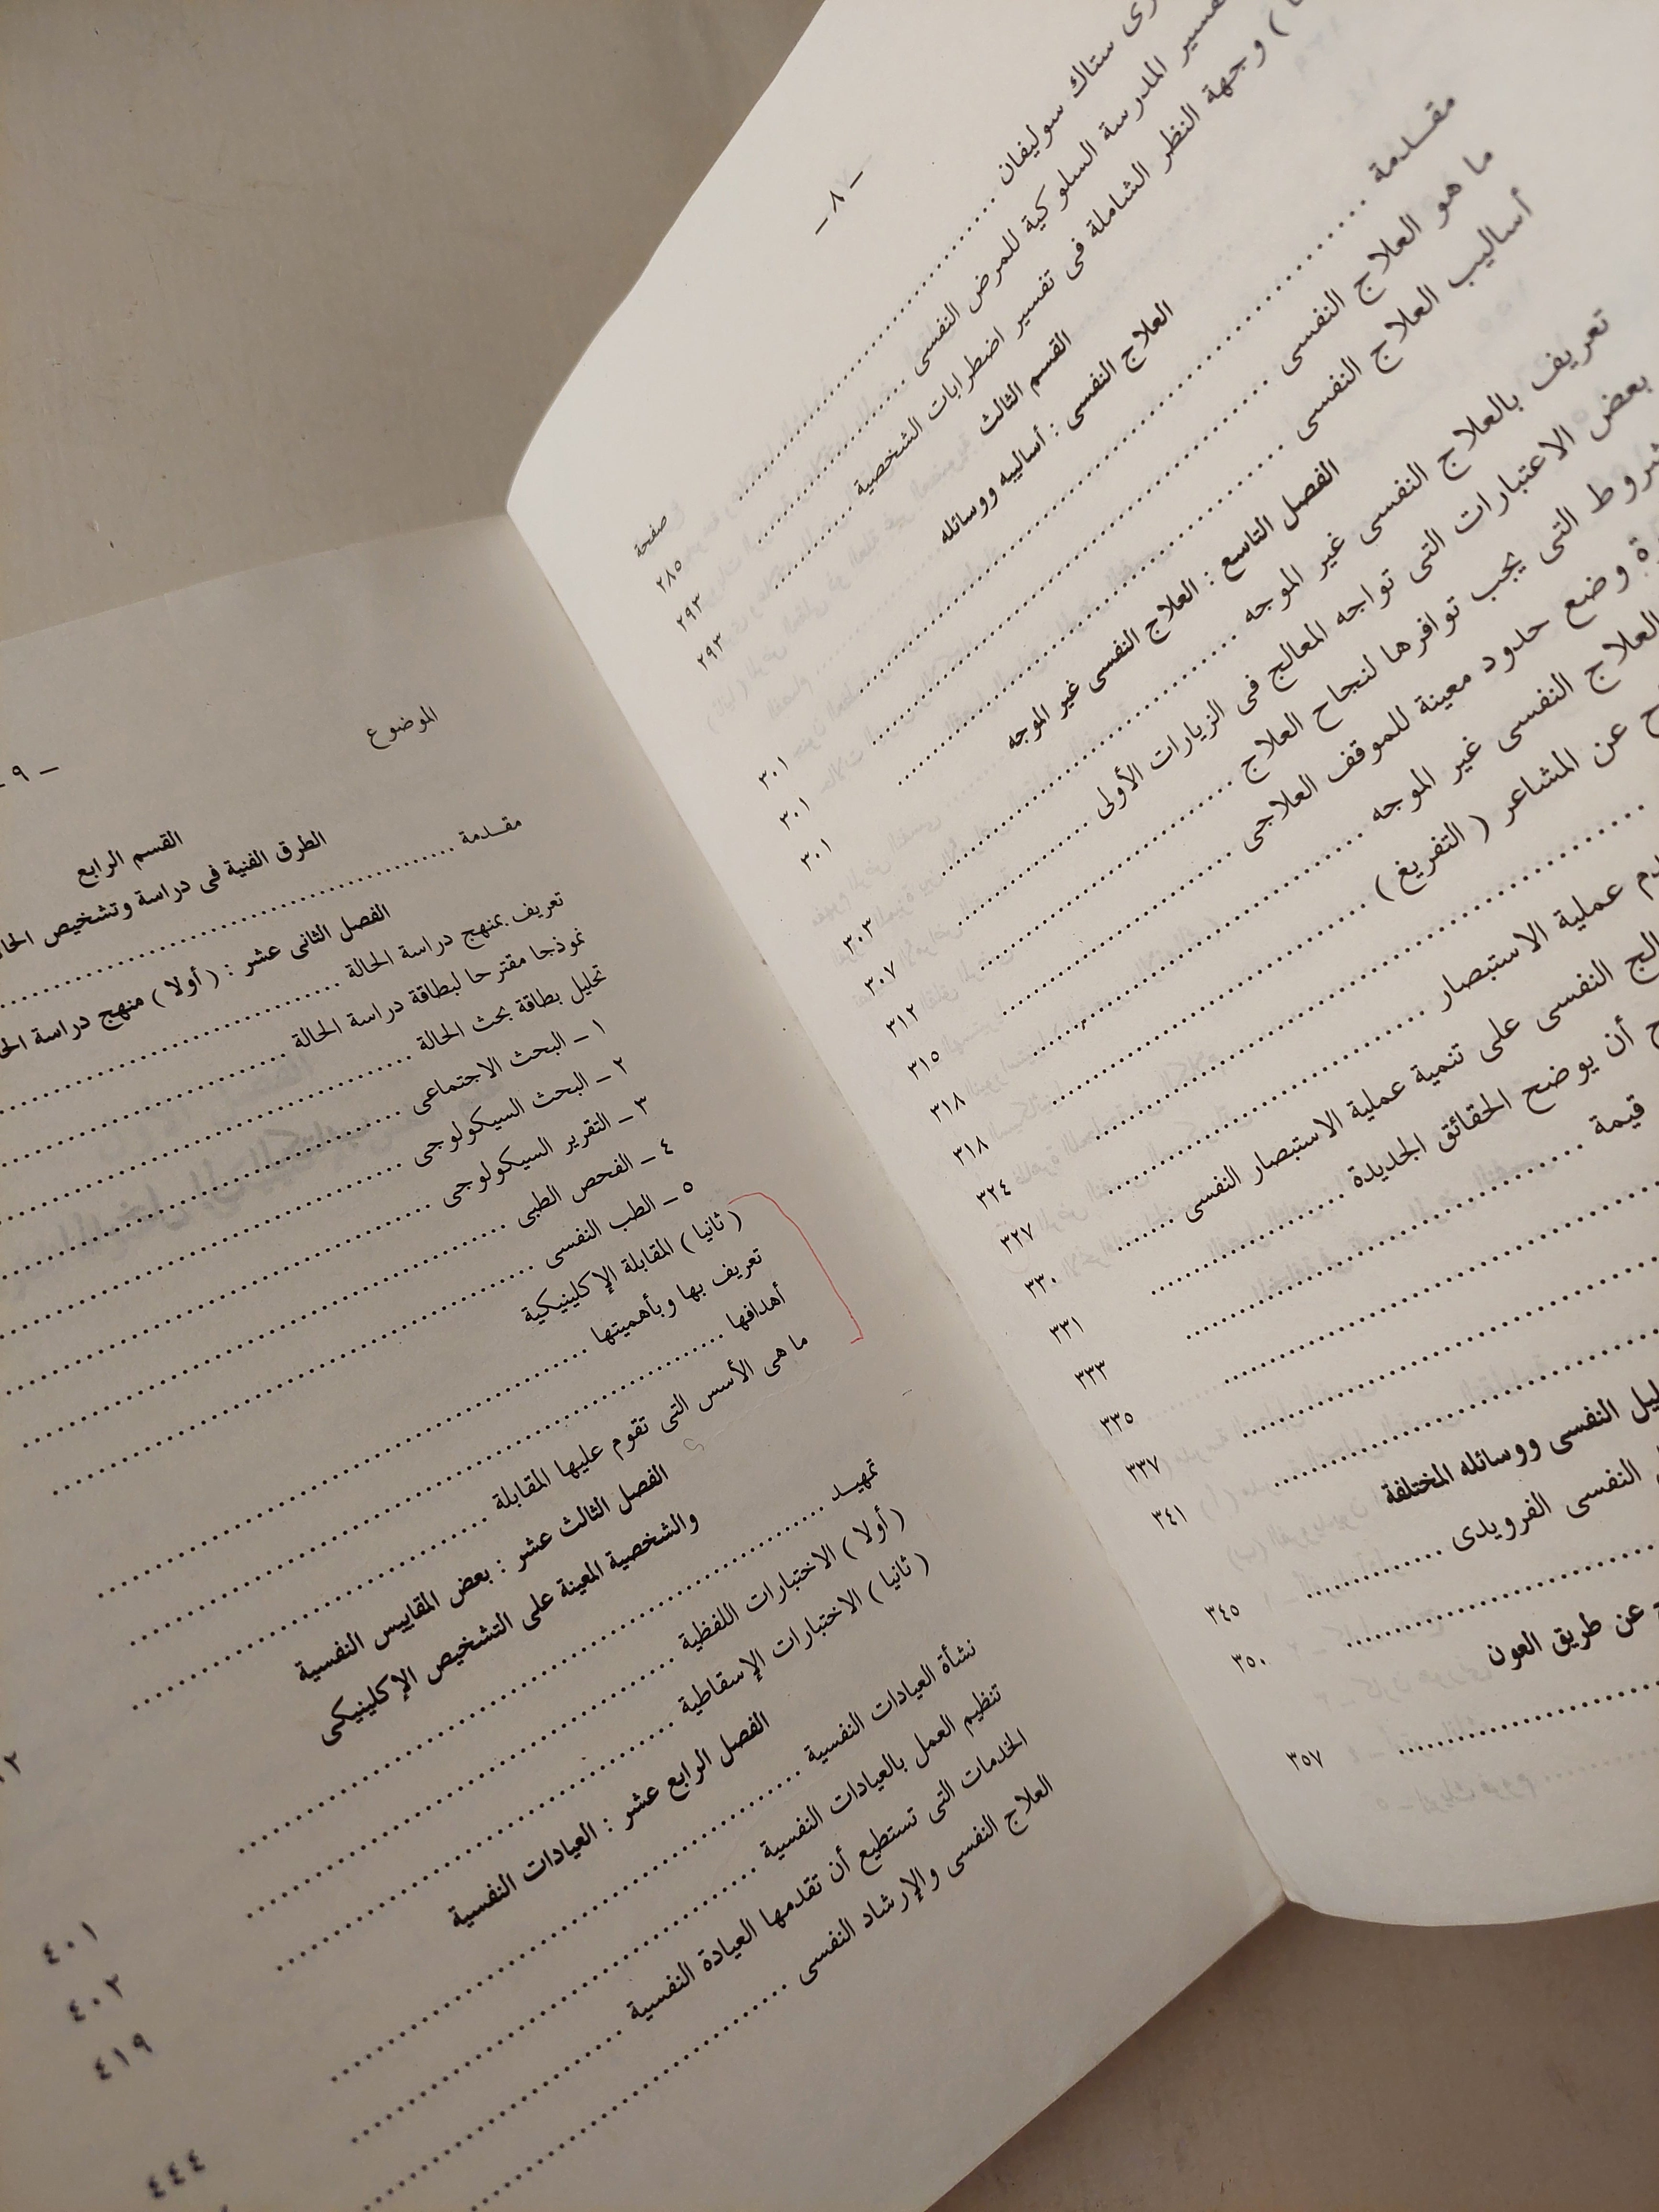 ـ ٨ ـ
صفحة
ستاك سوليفان .......... ٢٨٥
المدرسة السلوكية للمرض النفسى .......... ٢٩٣
) وجهة النظر الشاملة فى تفسير اضطرابات الشخصية .......... ٢٩٣
القسم الثالث
العلاج النفسى : أساليبه ووسائله
مقـدمة .......... ٣٠١
ما هو العلاج النفسى .......... ٣٠١
أساليب العلاج النفسى .......... ٣٠١
الفصل التاسع : العلاج النفسى غير الموجه
تعريف بالعلاج النفسى غير الموجه .......... ٣٠٣
بعض الاعتبارات التى تواجه المعالج فى الزيارات الأولى .......... ٣٠٧
التى يجب توافرها لنجاح العلاج .......... ٣١٢
وضع حدود معينة للموقف العلاجى .......... ٣١٥
العلاج النفسى غير الموجه .......... ٣١٨
عن المشاعر ( التفريغ ) .......... ٣١٨
.......... ٣٢٤
عملية الاستبصار .......... ٣٢٧
النفسى على تنمية عملية الاستبصار النفسى .......... ٣٣٠
أن يوضح الحقائق الجديدة .......... ٣٣١
قيمة .......... ٣٣٣
.......... ٣٣٥
.......... ٣٣٧
.......... ٣٤١
النفسى ووسائله المختلفة
النفسى الفرويدى .......... ٣٤٥
.......... ٣٥٠
عن طريق العون
.......... ٣٥٧
٩ ـ
الموضوع
القسم الرابع
الطرق الفنية فى دراسة وتشخيص
مقـدمة ..........
الفصل الثانى عشر : ( أولا ) منهج دراسة
تعريف بمنهج دراسة الحالة ..........
نموذجا مقترحا لبطاقة دراسة الحالة ..........
تحليل بطاقة بحث الحالة ..........
١ ـ البحث الاجتماعى ..........
٢ ـ البحث السيكولوجى ..........
٣ ـ التقرير السيكولوجى ..........
٤ ـ الفحص الطبى ..........
٥ ـ الطب النفسى ..........
( ثانيا ) المقابلة الإكلينيكية
تعريف بها وبأهميتها ..........
أهدافها ..........
ما هى الأسس التى تقوم عليها المقابلة ..........
الفصل الثالث عشر : بعض المقاييس النفسية
والشخصية المعينة على التشخيص الإكلينيكى
تمهيـد .......... ٤٠١
( أولا ) الاختبارات اللفظية .......... ٤٠٢
( ثانيا ) الاختبارات الإسقاطية .......... ٤١٩
الفصل الرابع عشر : العيادات النفسية
نشأة العيادات النفسية .......... ٤٤٤
تنظيم العمل بالعيادات النفسية ..........
الخدمات التى تستطيع أن تقدمها العيادة النفسية ..........
العلاج النفسى والإرشاد النفسى ..........